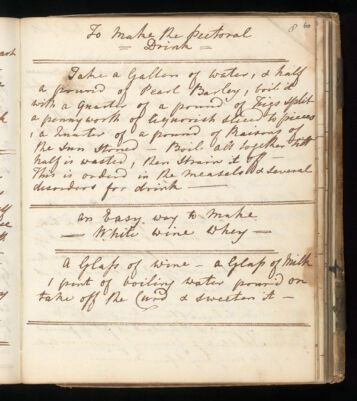 8 60
To Make the pectoral
Drink
Take a Gallon of Water, & half
a pound of Pearl Barley, boil it
with a Quarter of a pound of Figs Split
a pennyworth of liquorish sliced to pieces
, a Quarter of a pound of Raisons of
the Sun Stoned — Boil all together till
half is wasted, then Strain it off —
This is orderd in the Measels & several
disorders for drink —
an Easy way to Make
— White Wine Whey —
A Glass of Wine – a Glass of Milk
1 pint of boiling water pour'd on
take off the Curd & sweeten it —